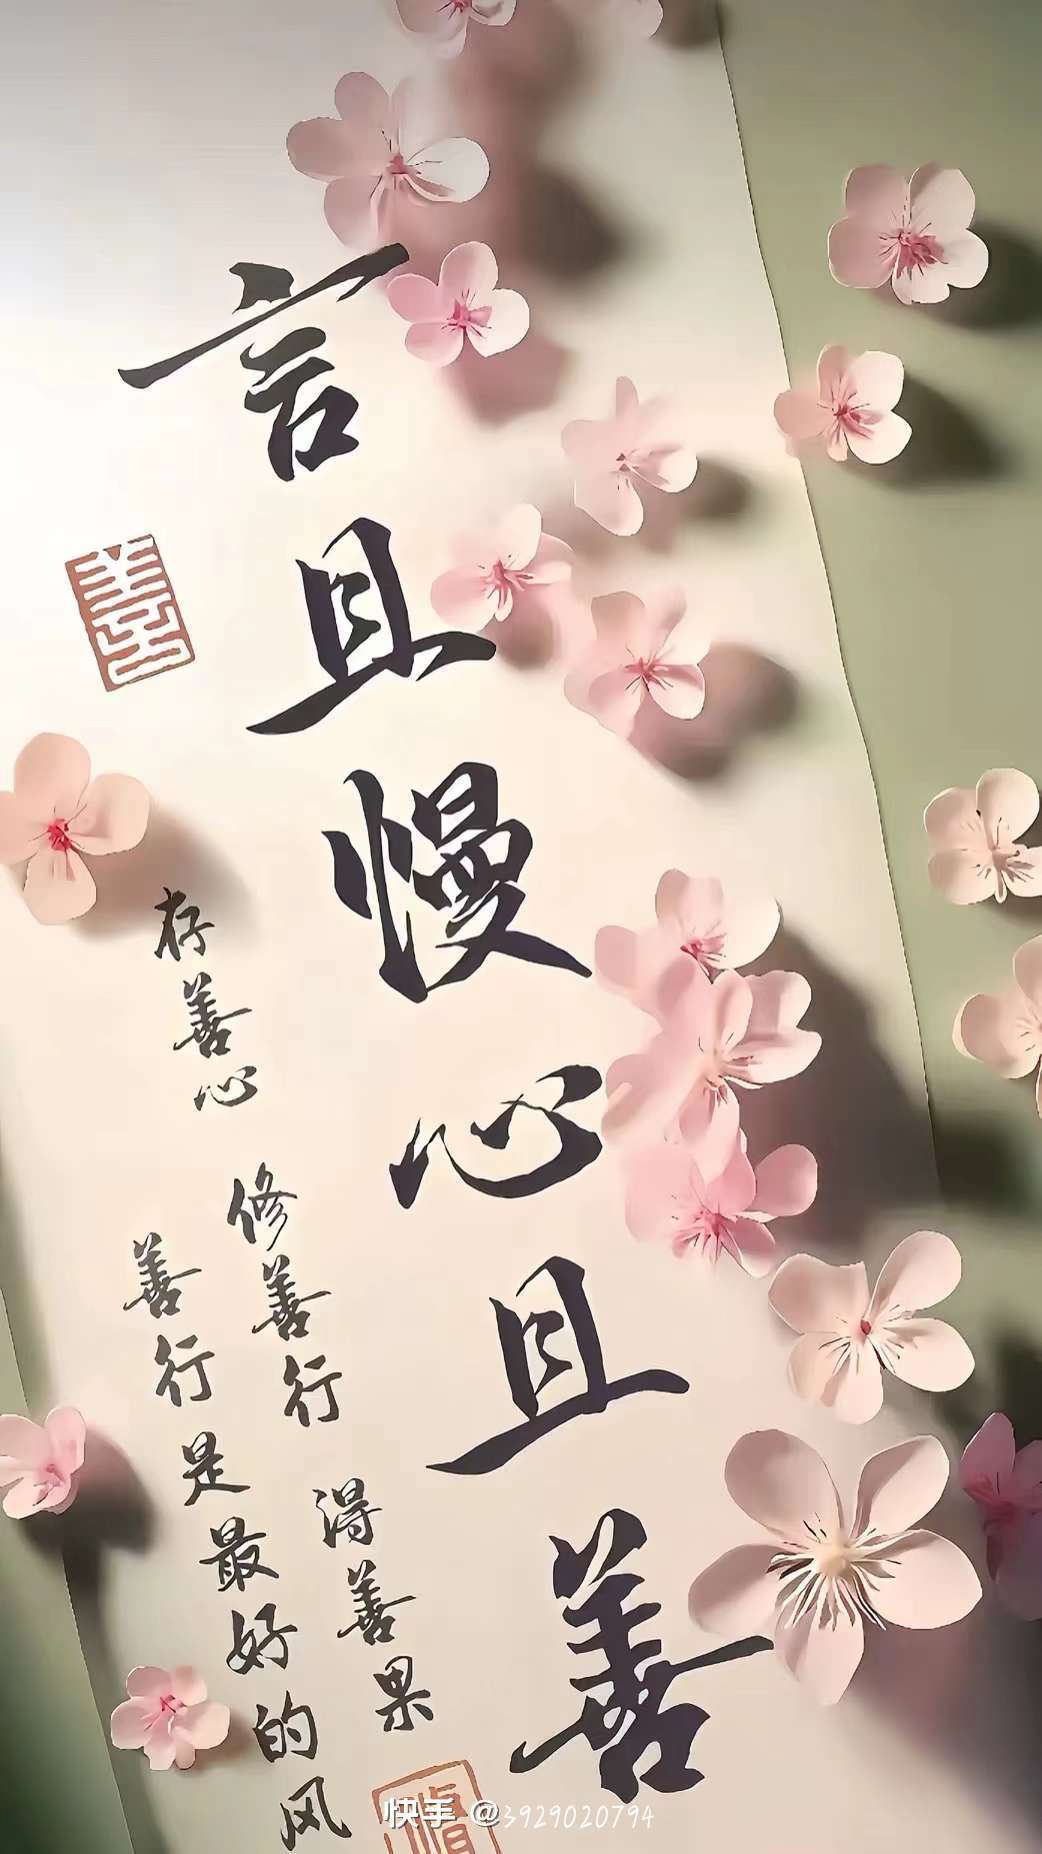 言且慢心且善
善
存善心 修善行 得善果
善行是最好的风
快手 @3929020794